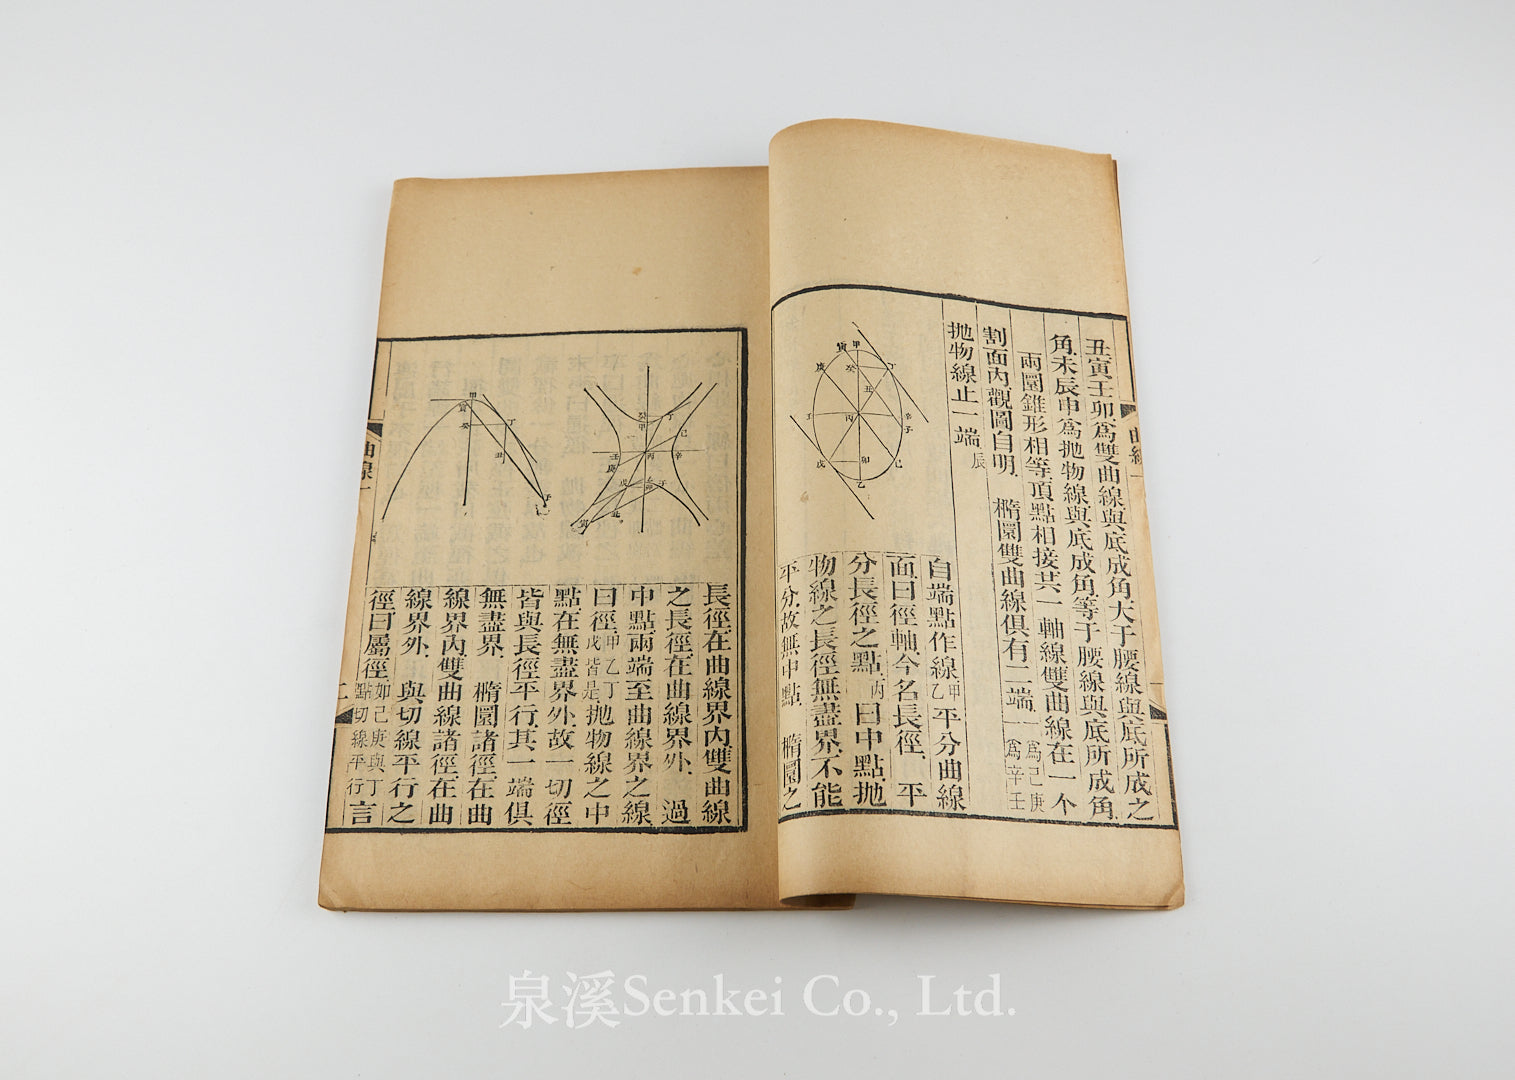 丑寅壬卯爲雙曲線與底成角大于腰線與底所成之
角未辰申爲抛物線與底成角等于腰線與底所成角
兩圜錐形相等頂點相接共一軸線雙曲線在一个
割面內觀圖自明 橢圜雙曲線俱有二端一爲己庚一爲辛壬
抛物線止一端辰
自端點作線甲乙平分曲線
面曰徑軸今名長徑 平
分長徑之點丙曰中點抛
物線之長徑無盡界不能
平分故無中點 橢圜之
甲
寅
丁
癸
庚
丑
壬
丙
辛
子
戊
卯
己
乙
曲線一
長徑在曲線界內雙曲線
之長徑在曲線界外 過
中點兩端至曲線界之線
曰徑甲乙丁戊皆是抛物線之中
點在無盡界外故一切徑
皆與長徑平行其一端俱
無盡界 橢圜諸徑在曲
線界內雙曲線諸徑在曲
線界外 與切線平行之
徑曰屬徑如己庚與丁點切線平行言
癸
甲
丁
己
壬
庚
丙
辛
戊
乙
卯
子
丑
寅
甲
寅
癸
丁
丑
子
己
曲線一
二
泉溪Senkei Co., Ltd.